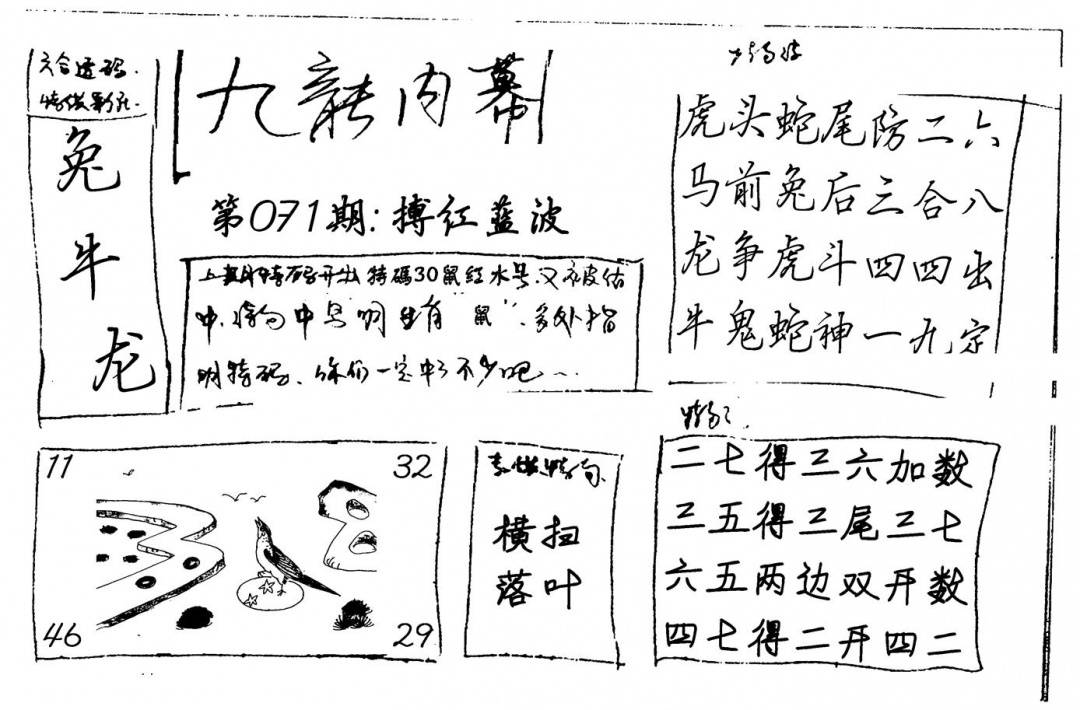 六合透码
兔
牛
龙
九龍内幕
第071期:搏红蓝波
上期特码开出特碼30鼠红水号.又被估
中.特句中号明生肖"鼠".多处指
明特码、你们一定中了不少吧
虎头蛇尾防二六
马前兔后三合八
龙争虎斗四四出
牛鬼蛇神一九定
11
32
46
29
横扫
落叶
二七得三六加数
三五得三尾三七
六五两边双开数
四七得二开四二